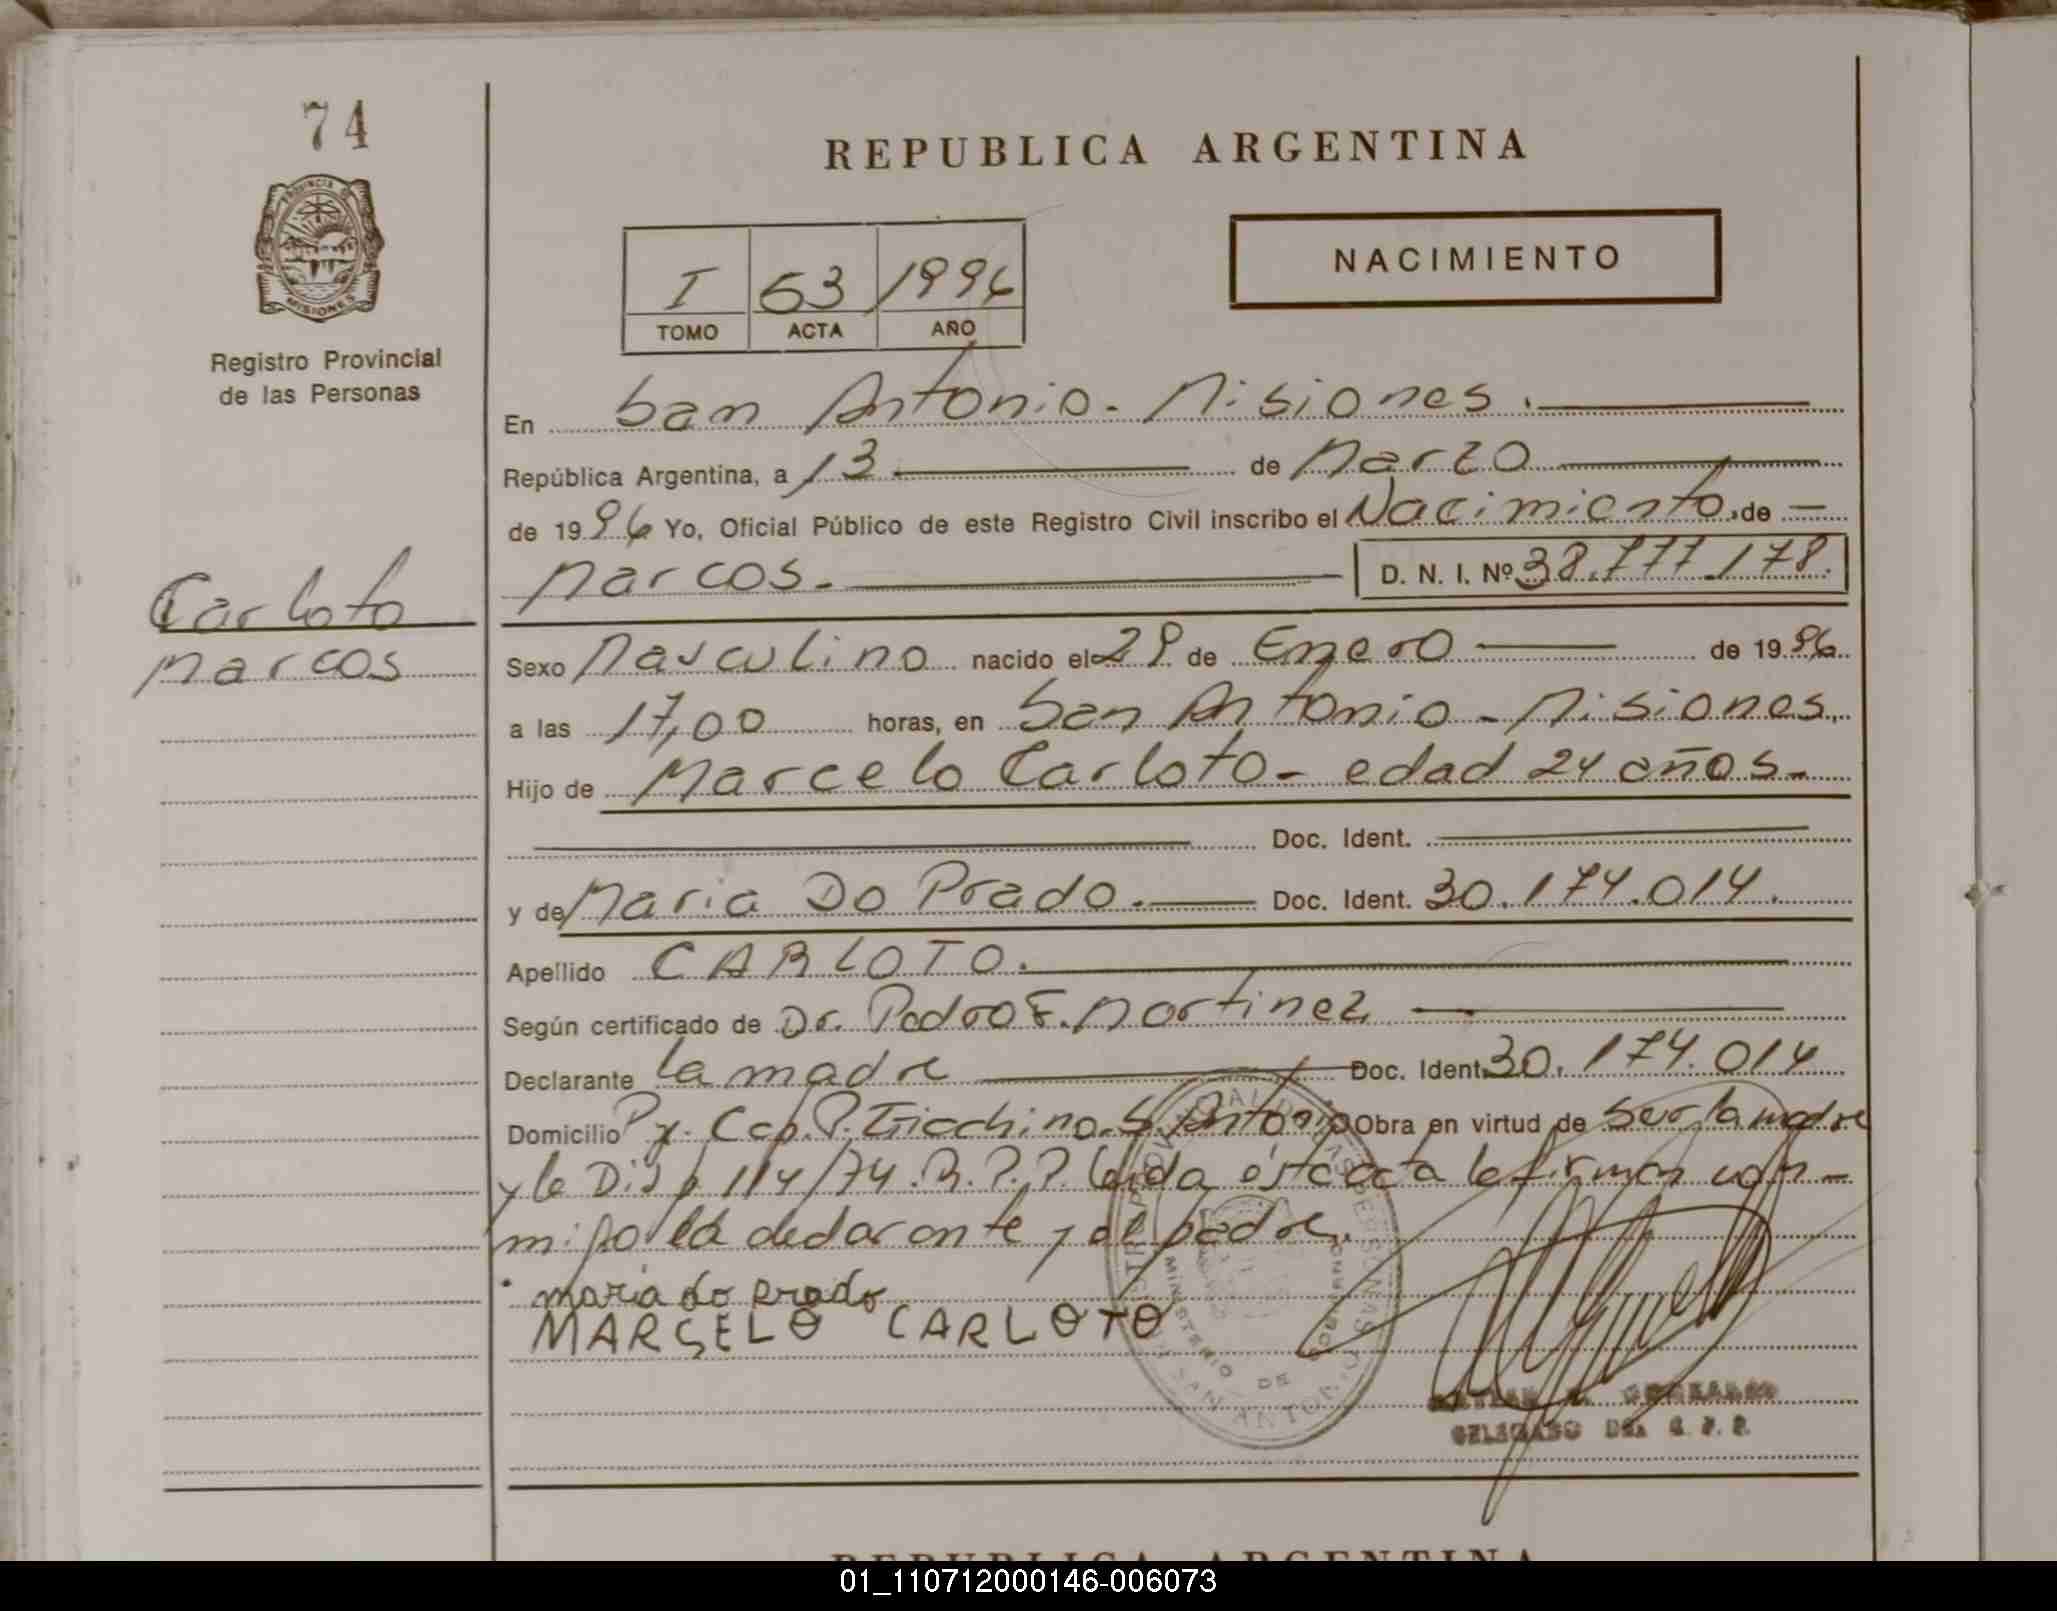 74
PROVINCIA DE
MISIONES
Registro Provincial
de las Personas
Carloto
Marcos
REPUBLICA ARGENTINA
I 53 1996
TOMO ACTA AÑO
NACIMIENTO
En San Antonio - Misiones.
República Argentina, a 13 de Marzo
de 1996 Yo, Oficial Público de este Registro Civil inscribo el Nacimiento de
Marcos. D. N. I. Nº 38.777.178.
Sexo Masculino nacido el 29 de Enero de 1996
a las 17,00 horas, en San Antonio - Misiones.
Hijo de Marcelo Carloto - edad 24 años -
Doc. Ident.
y de Maria Do Prado. Doc. Ident. 30.174.014.
Apellido CARLOTO.
Según certificado de Dr. Pedro E. Martinez
Declarante La madre Doc. Ident. 30.174.014
Domicilio Cap. P. S. Antonio Obra en virtud de ser la madre
y la Disp. 114/74.R.P.P. Leida ésta acta la firman con-
migo la declarante y el padre.
maria do prado
MARCELO CARLOTO
MINISTERIO DE GOBIERNO
SAN ANTONIO
DELEGADO DEL R. P. P.
REPUBLICA ARGENTINA
01_110712000146-006073